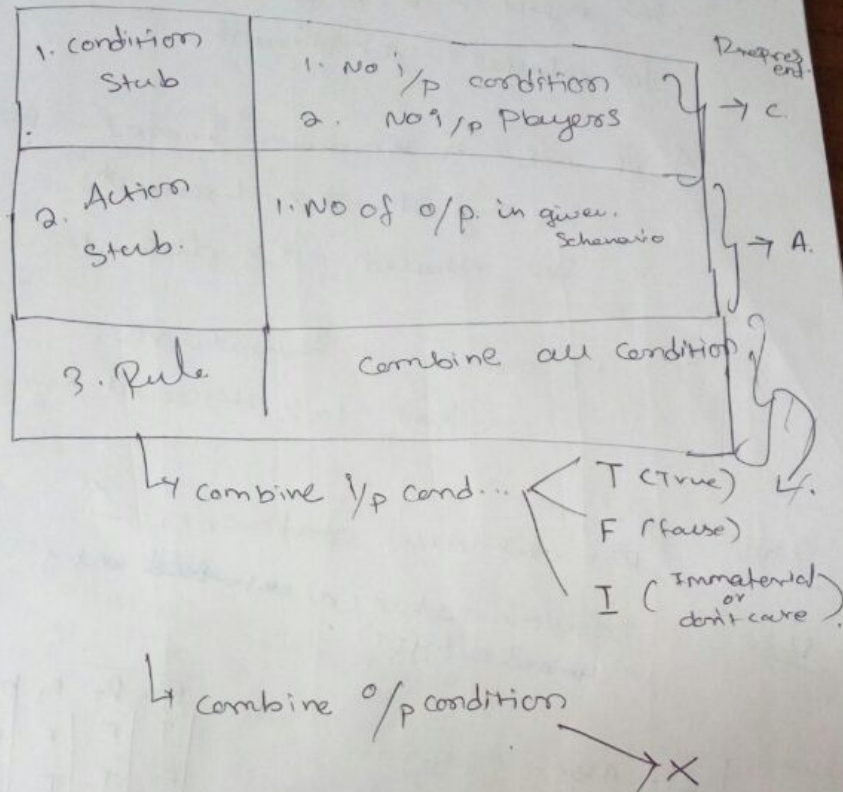 1. Condition
Stub
1. No i/p condition
2. No i/p Players
→ C.
2. Action
Stub.
1. No of o/p. in given.
Schenario
→ A.
3. Rule
Combine all condition
↳ combine i/p cond...
T (True)
F (false)
I (Immaterial
or
don't care).
↳ combine o/p condition
→ X